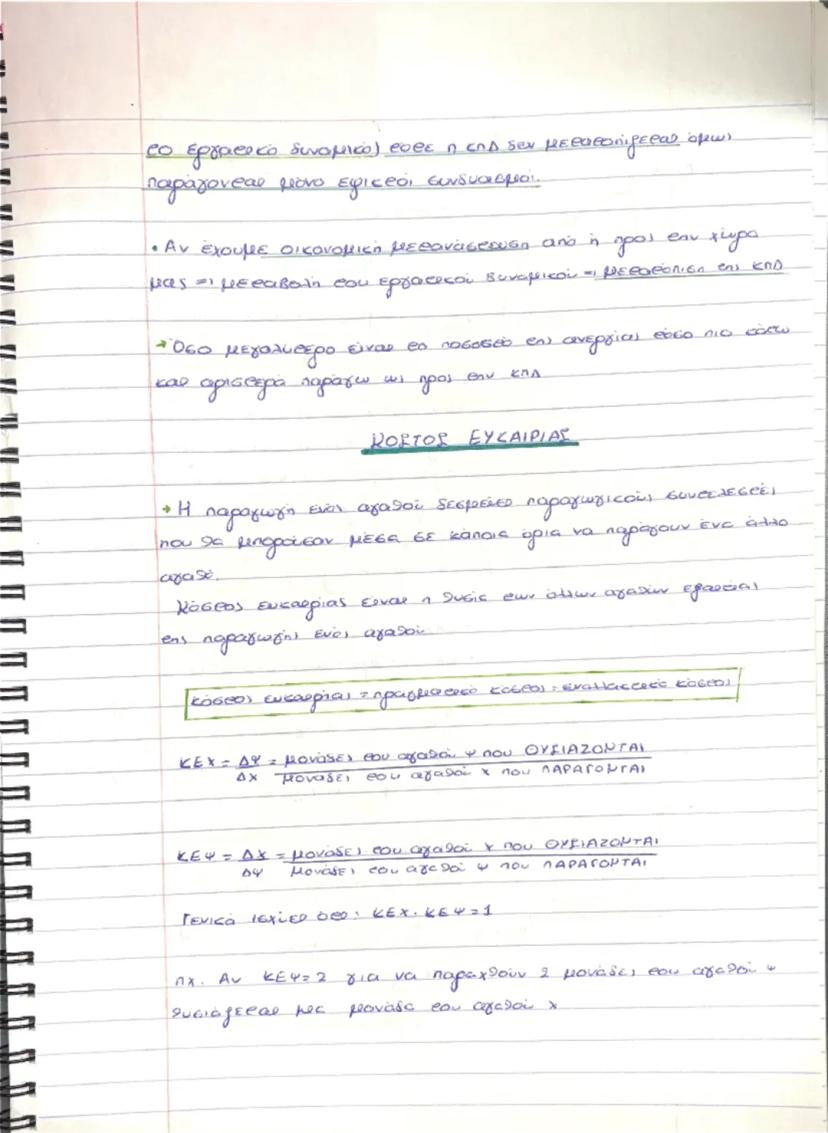 το εργατικό δυναμικό) τότε η ΚΠΔ δεν μετατοπίζεται όμως
παράγονται μόνο εφικτοί συνδυασμοί.
• Αν έχουμε οικονομική μετανάστευση από ή προς την χώρα
μας => μεταβολή του εργατικού δυναμικού => μετατόπιση της ΚΠΔ
→ Όσο μεγαλύτερο είναι το ποσοστό της ανεργίας τόσο πιο κάτω
και αριστερά παράγω ως προς την ΚΠΔ
ΚΟΣΤΟΣ ΕΥΚΑΙΡΙΑΣ
→ Η παραγωγή ενός αγαθού δεσμεύει παραγωγικούς συντελεστές
που θα μπορούσαν μέσα σε κάποια όρια να παράγουν ένα άλλο
αγαθό.
Κόστος ευκαιρίας είναι η θυσία των άλλων αγαθών εξαιτίας
της παραγωγής ενός αγαθού
Κόστος ευκαιρίας = πραγματικό κόστος = εναλλακτικό κόστος
ΚΕΧ = ΔΨ = μονάδες του αγαθού Ψ που ΘΥΣΙΑΖΟΝΤΑΙ
ΔΧ μονάδες του αγαθού Χ που ΠΑΡΑΓΟΝΤΑΙ
ΚΕΨ = ΔΧ = μονάδες του αγαθού Χ που ΘΥΣΙΑΖΟΝΤΑΙ
ΔΨ μονάδες του αγαθού Ψ που ΠΑΡΑΓΟΝΤΑΙ
Γενικά ισχύει ότι: ΚΕΧ . ΚΕΨ = 1
πχ. Αν ΚΕΨ=2 για να παραχθούν 2 μονάδες του αγαθού Ψ
θυσιάζεται μια μονάδα του αγαθού Χ